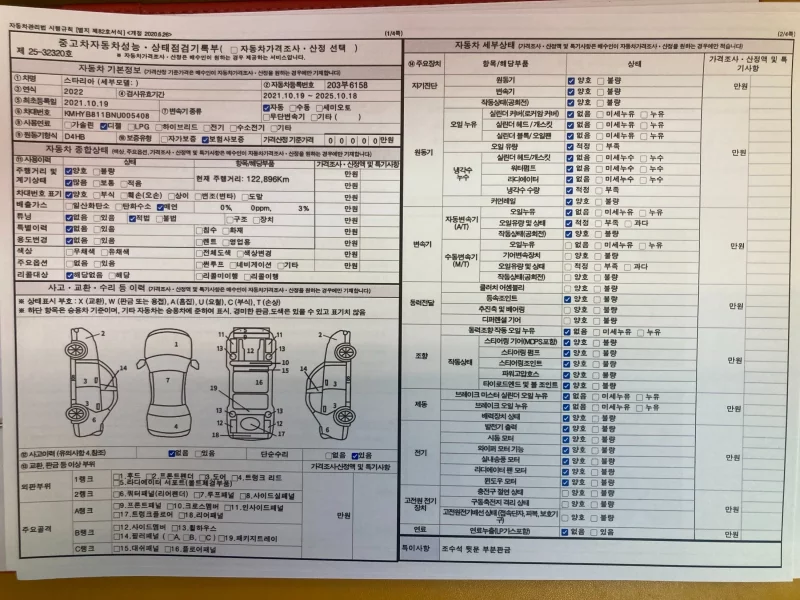 자동차관리법 시행규칙 [별지 제82호서식] <개정 2020.6.26>
(1/4쪽)
중고자동차성능・상태점검기록부 ( ☐ 자동차가격조사・산정 선택 )
제 25-32320호
※ 자동차가격조사・산정은 매수인이 원하는 경우 제공하는 서비스입니다.
자동차 기본정보 (가격산정 기준가격은 매수인이 자동차가격조사・산정을 원하는 경우에만 기재합니다)
① 차명 스타리아 (세부모델: ) ② 자동차등록번호 203무6158
③ 연식 2022 ④ 검사유효기간 2021.10.19 ~ 2025.10.18
⑤ 최초등록일 2021.10.19 ⑦ 변속기 종류 ☑자동 ☐수동 ☐세미오토
⑥ 차대번호 KMHYB811BNU005408 ☐무단변속기 ☐기타 ( )
⑧ 사용연료 ☐가솔린 ☑디젤 ☐LPG ☐하이브리드 ☐전기 ☐수소전기 ☐기타
⑨ 원동기형식 D4HB ⑩ 보증유형 ☐자가보증 ☑보험사보증 가격산정 기준가격 0 0 0 0 0 만원
자동차 종합상태 (색상, 주요옵션, 가격조사・산정액 및 특기사항은 매수인이 자동차가격조사・산정을 원하는 경우에만 기재합니다)
⑪ 사용이력 상태 항목/해당부품 가격조사・산정액 및 특기사항
주행거리 및 계기상태 ☑양호 ☐불량 만원
☑많음 ☐보통 ☐적음 현재 주행거리: 122,896Km 만원
차대번호 표기 ☑양호 ☐부식 ☐훼손(오손) ☐상이 ☐변조(변타) ☐도말 만원
배출가스 ☐일산화탄소 ☐탄화수소 ☑매연 0%, 0ppm, 3% 만원
튜닝 ☑없음 ☐있음 ☑적법 ☐불법 ☐구조 ☐장치 만원
특별이력 ☑없음 ☐있음 ☐침수 ☐화재 만원
용도변경 ☑없음 ☐있음 ☐렌트 ☐영업용 만원
색상 ☐무채색 ☐유채색 ☐전체도색 ☐색상변경 만원
주요옵션 ☐없음 ☐있음 ☐썬루프 ☐네비게이션 ☐기타 만원
리콜대상 ☑해당없음 ☐해당 ☐리콜미이행 ☐리콜이행
사고・교환・수리 등 이력 (가격조사・산정액 및 특기사항은 매수인이 자동차가격조사・산정을 원하는 경우에만 기재합니다)
※ 상태표시 부호 : X (교환), W (판금 또는 용접), A (흠집), U (요철), C (부식), T (손상)
※ 하단 항목은 승용차 기준이며, 기타 자동차는 승용차에 준하여 표시. 경미한 판금,도색은 있을 수 있고 표기치 않음
⑫ 사고이력 (유의사항 4.참조) ☑없음 ☐있음 단순수리 ☐없음 ☑있음
⑬ 교환, 판금 등 이상 부위 가격조사산정액 및 특기사항
외판부위 1랭크 ☐1.후드 ☐2.프론트펜더 ☐3.도어 ☐4.트렁크 리드
☐5.라디에이터 서포트(볼트체결부품)
2랭크 ☐6.쿼터패널(리어펜더) ☐7.루프패널 ☐8.사이드실패널
주요골격 A랭크 ☐9.프론트패널 ☐10.크로스멤버 ☐11.인사이드패널
☐17.트렁크플로어 ☐18.리어패널 만원
B랭크 ☐12.사이드멤버 ☐13.휠하우스
☐14.필러패널 (☐A, ☐B, ☐C) ☐19.패키지트레이
C랭크 ☐15.대쉬패널 ☐16.플로어패널
(2/4쪽)
자동차 세부상태 (가격조사・산정액 및 특기사항은 매수인이 자동차가격조사・산정을 원하는 경우에만 적습니다)
⑭ 주요장치 항목/해당부품 상태 가격조사・산정액 및 특기사항
자기진단 원동기 ☑양호 ☐불량 만원
변속기 ☑양호 ☐불량
원동기 작동상태(공회전) ☑양호 ☐불량 만원
오일 누유 실린더 커버(로커암 커버) ☑없음 ☐미세누유 ☐누유
실린더 헤드 / 개스킷 ☑없음 ☐미세누유 ☐누유
실린더 블록 / 오일팬 ☑없음 ☐미세누유 ☐누유
오일 유량 ☑적정 ☐부족
냉각수 누수 실린더 헤드/개스킷 ☑없음 ☐미세누수 ☐누수
워터펌프 ☑없음 ☐미세누수 ☐누수
라디에이터 ☑없음 ☐미세누수 ☐누수
냉각수 수량 ☑적정 ☐부족
커먼레일 ☑양호 ☐불량
변속기 자동변속기 (A/T) 오일누유 ☑없음 ☐미세누유 ☐누유 만원
오일유량 및 상태 ☑적정 ☐부족 ☐과다
작동상태(공회전) ☑양호 ☐불량
수동변속기 (M/T) 오일누유 ☐없음 ☐미세누유 ☐누유
기어변속장치 ☐양호 ☐불량
오일유량 및 상태 ☐적정 ☐부족 ☐과다
작동상태(공회전) ☐양호 ☐불량
동력전달 클러치 어셈블리 ☐양호 ☐불량 만원
등속조인트 ☑양호 ☐불량
추진축 및 베어링 ☐양호 ☐불량
디퍼렌셜 기어 ☐양호 ☐불량
조향 동력조향 작동 오일 누유 ☑없음 ☐미세누유 ☐누유 만원
작동상태 스티어링 기어(MDPS포함) ☑양호 ☐불량
스티어링 펌프 ☑양호 ☐불량
스티어링조인트 ☑양호 ☐불량
파워고압호스 ☑양호 ☐불량
타이로드엔드 및 볼 조인트 ☑양호 ☐불량
제동 브레이크 마스터 실린더 오일 누유 ☑없음 ☐미세누유 ☐누유 만원
브레이크 오일 누유 ☑없음 ☐미세누유 ☐누유
배력장치 상태 ☑양호 ☐불량
전기 발전기 출력 ☑양호 ☐불량 만원
시동 모터 ☑양호 ☐불량
와이퍼 모터 기능 ☑양호 ☐불량
실내송풍 모터 ☑양호 ☐불량
라디에이터 팬 모터 ☑양호 ☐불량
윈도우 모터 ☑양호 ☐불량
고전원 전기장치 충전구 절연 상태 ☐양호 ☐불량 만원
구동축전지 격리 상태 ☐양호 ☐불량
고전원전기배선 상태(접속단자, 피복, 보호기구) ☐양호 ☐불량
연료 연료누출(LP가스포함) ☑없음 ☐있음 만원
특이사항 조수석 뒷문 부분판금